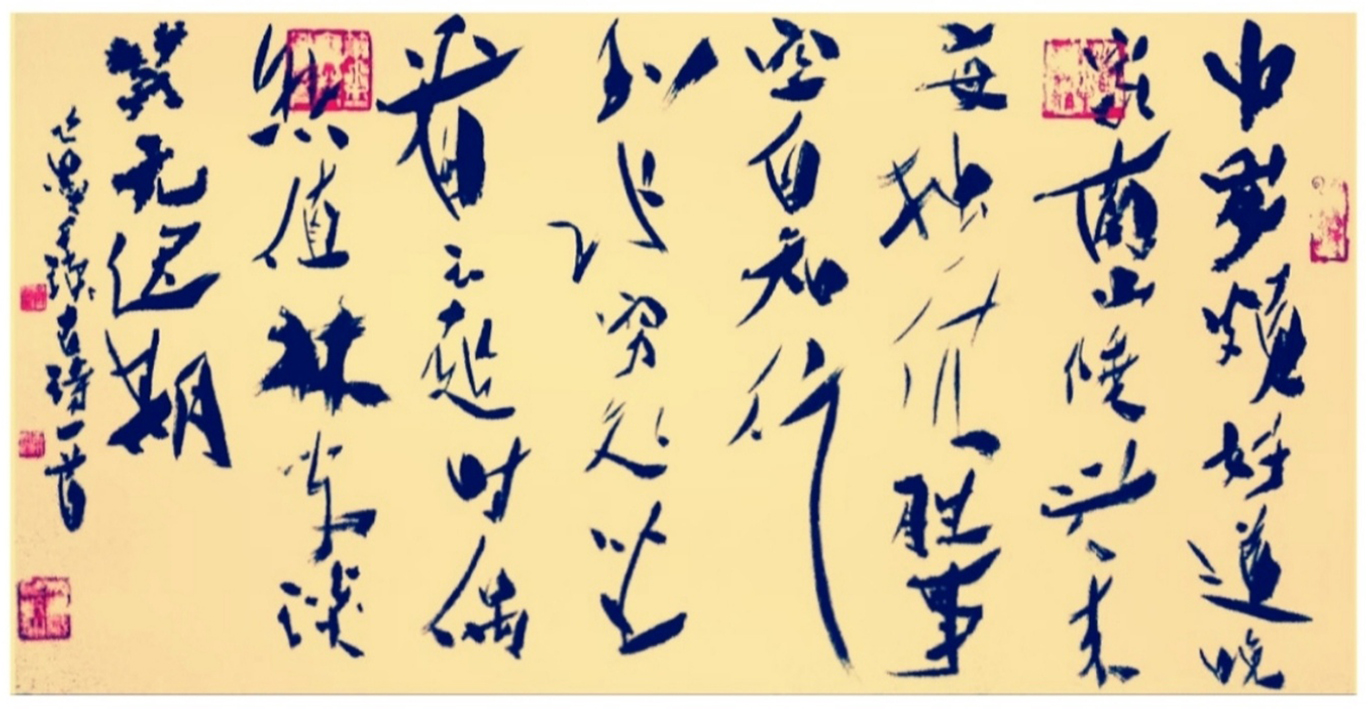 中岁颇好道晚
家南山陲兴来
每独往胜事
空自知行
到水穷处坐
看云起时偶
然值林叟谈
笑无还期
王维古诗一首